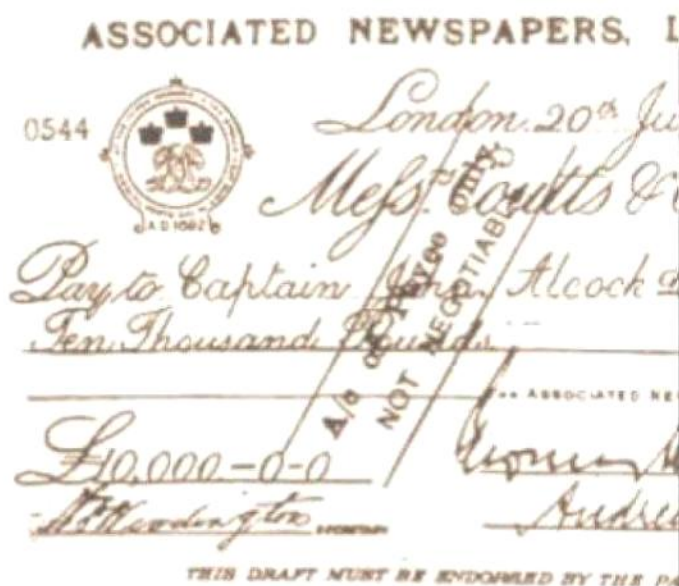 ASSOCIATED NEWSPAPERS, L
0544
London. 20th Ju
Messrs. Coutts &
A.D 1692
Pay to Captain John Alcock
Ten Thousand Pounds
A/c of Payee only.
NOT NEGOTIABL
For ASSOCIATED NE
£10,000.-0-0
SECRETARY
Andre
THIS DRAFT MUST BE ENDORSED BY THE PA